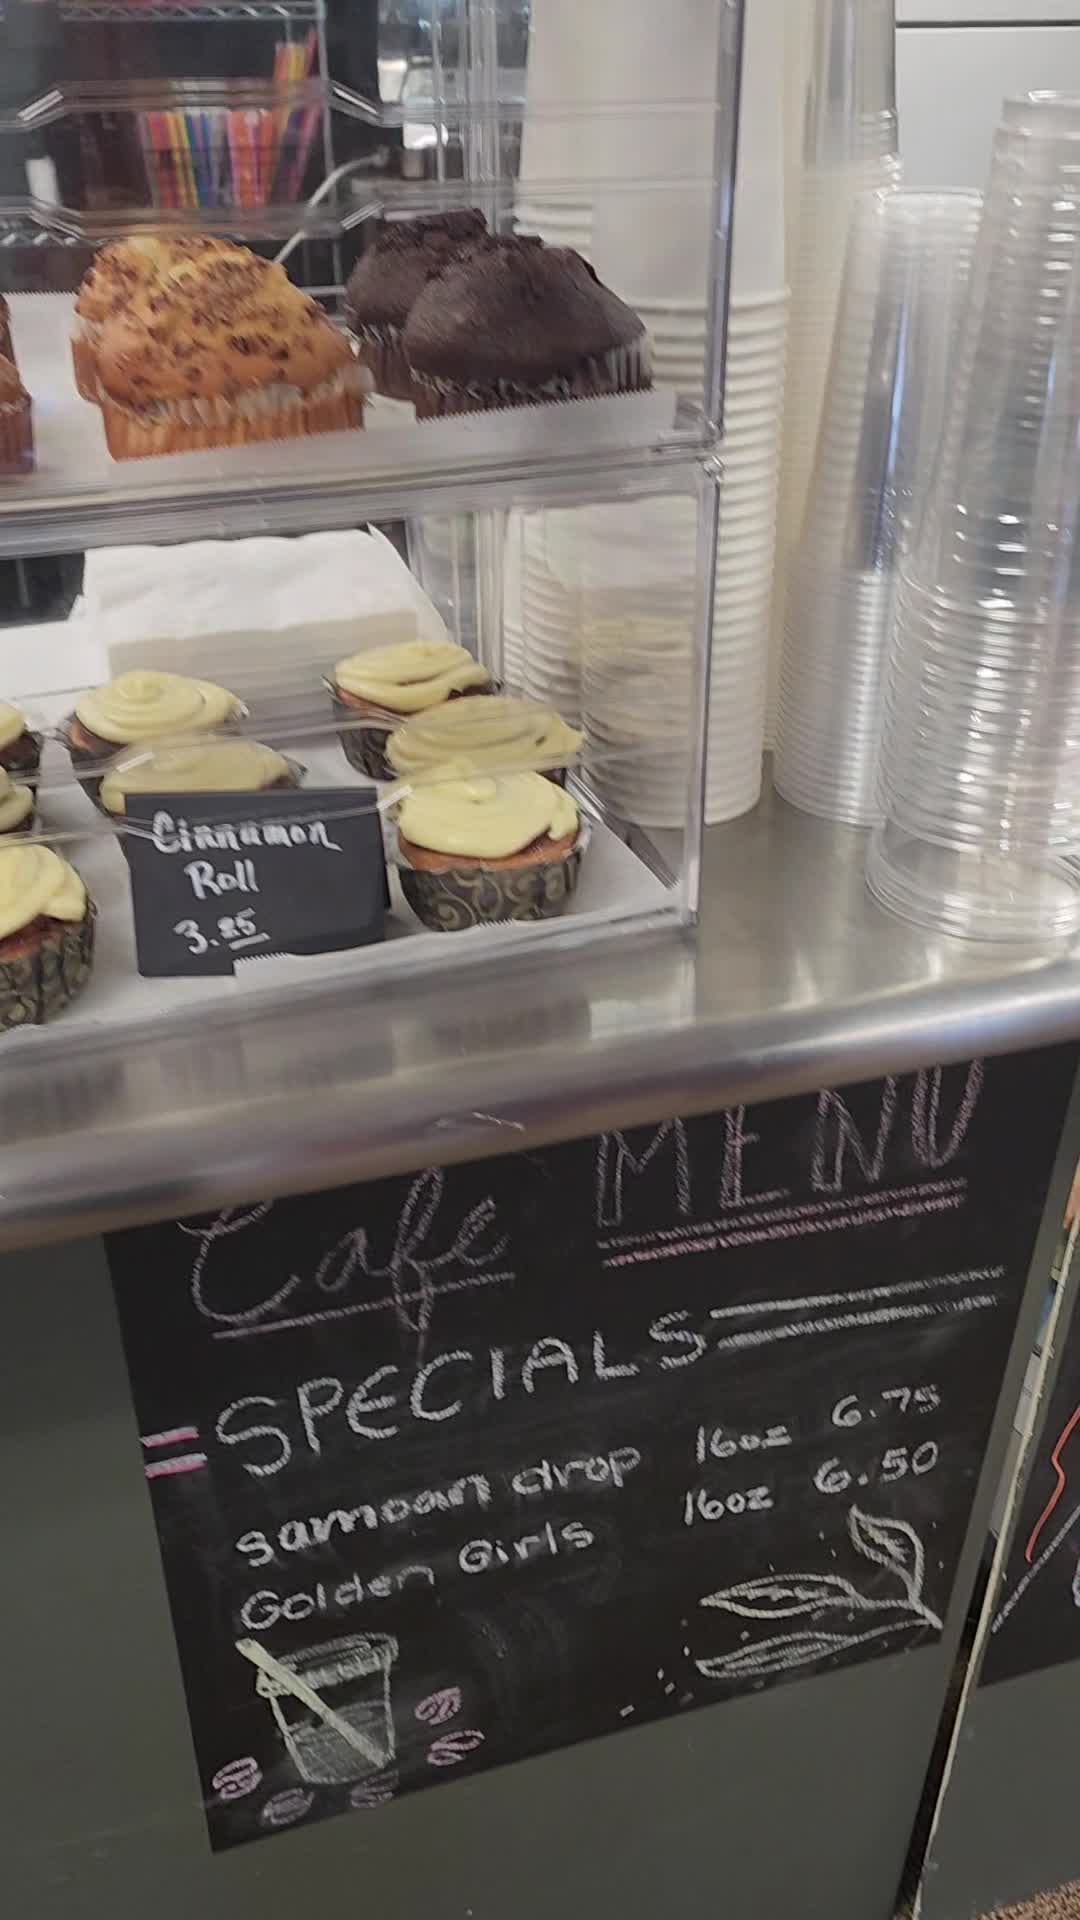 Cinnamon
Roll
3.25
Cafe MENU
SPECIALS
samoan drop 16oz 6.75
Golden Girls 16oz 6.50